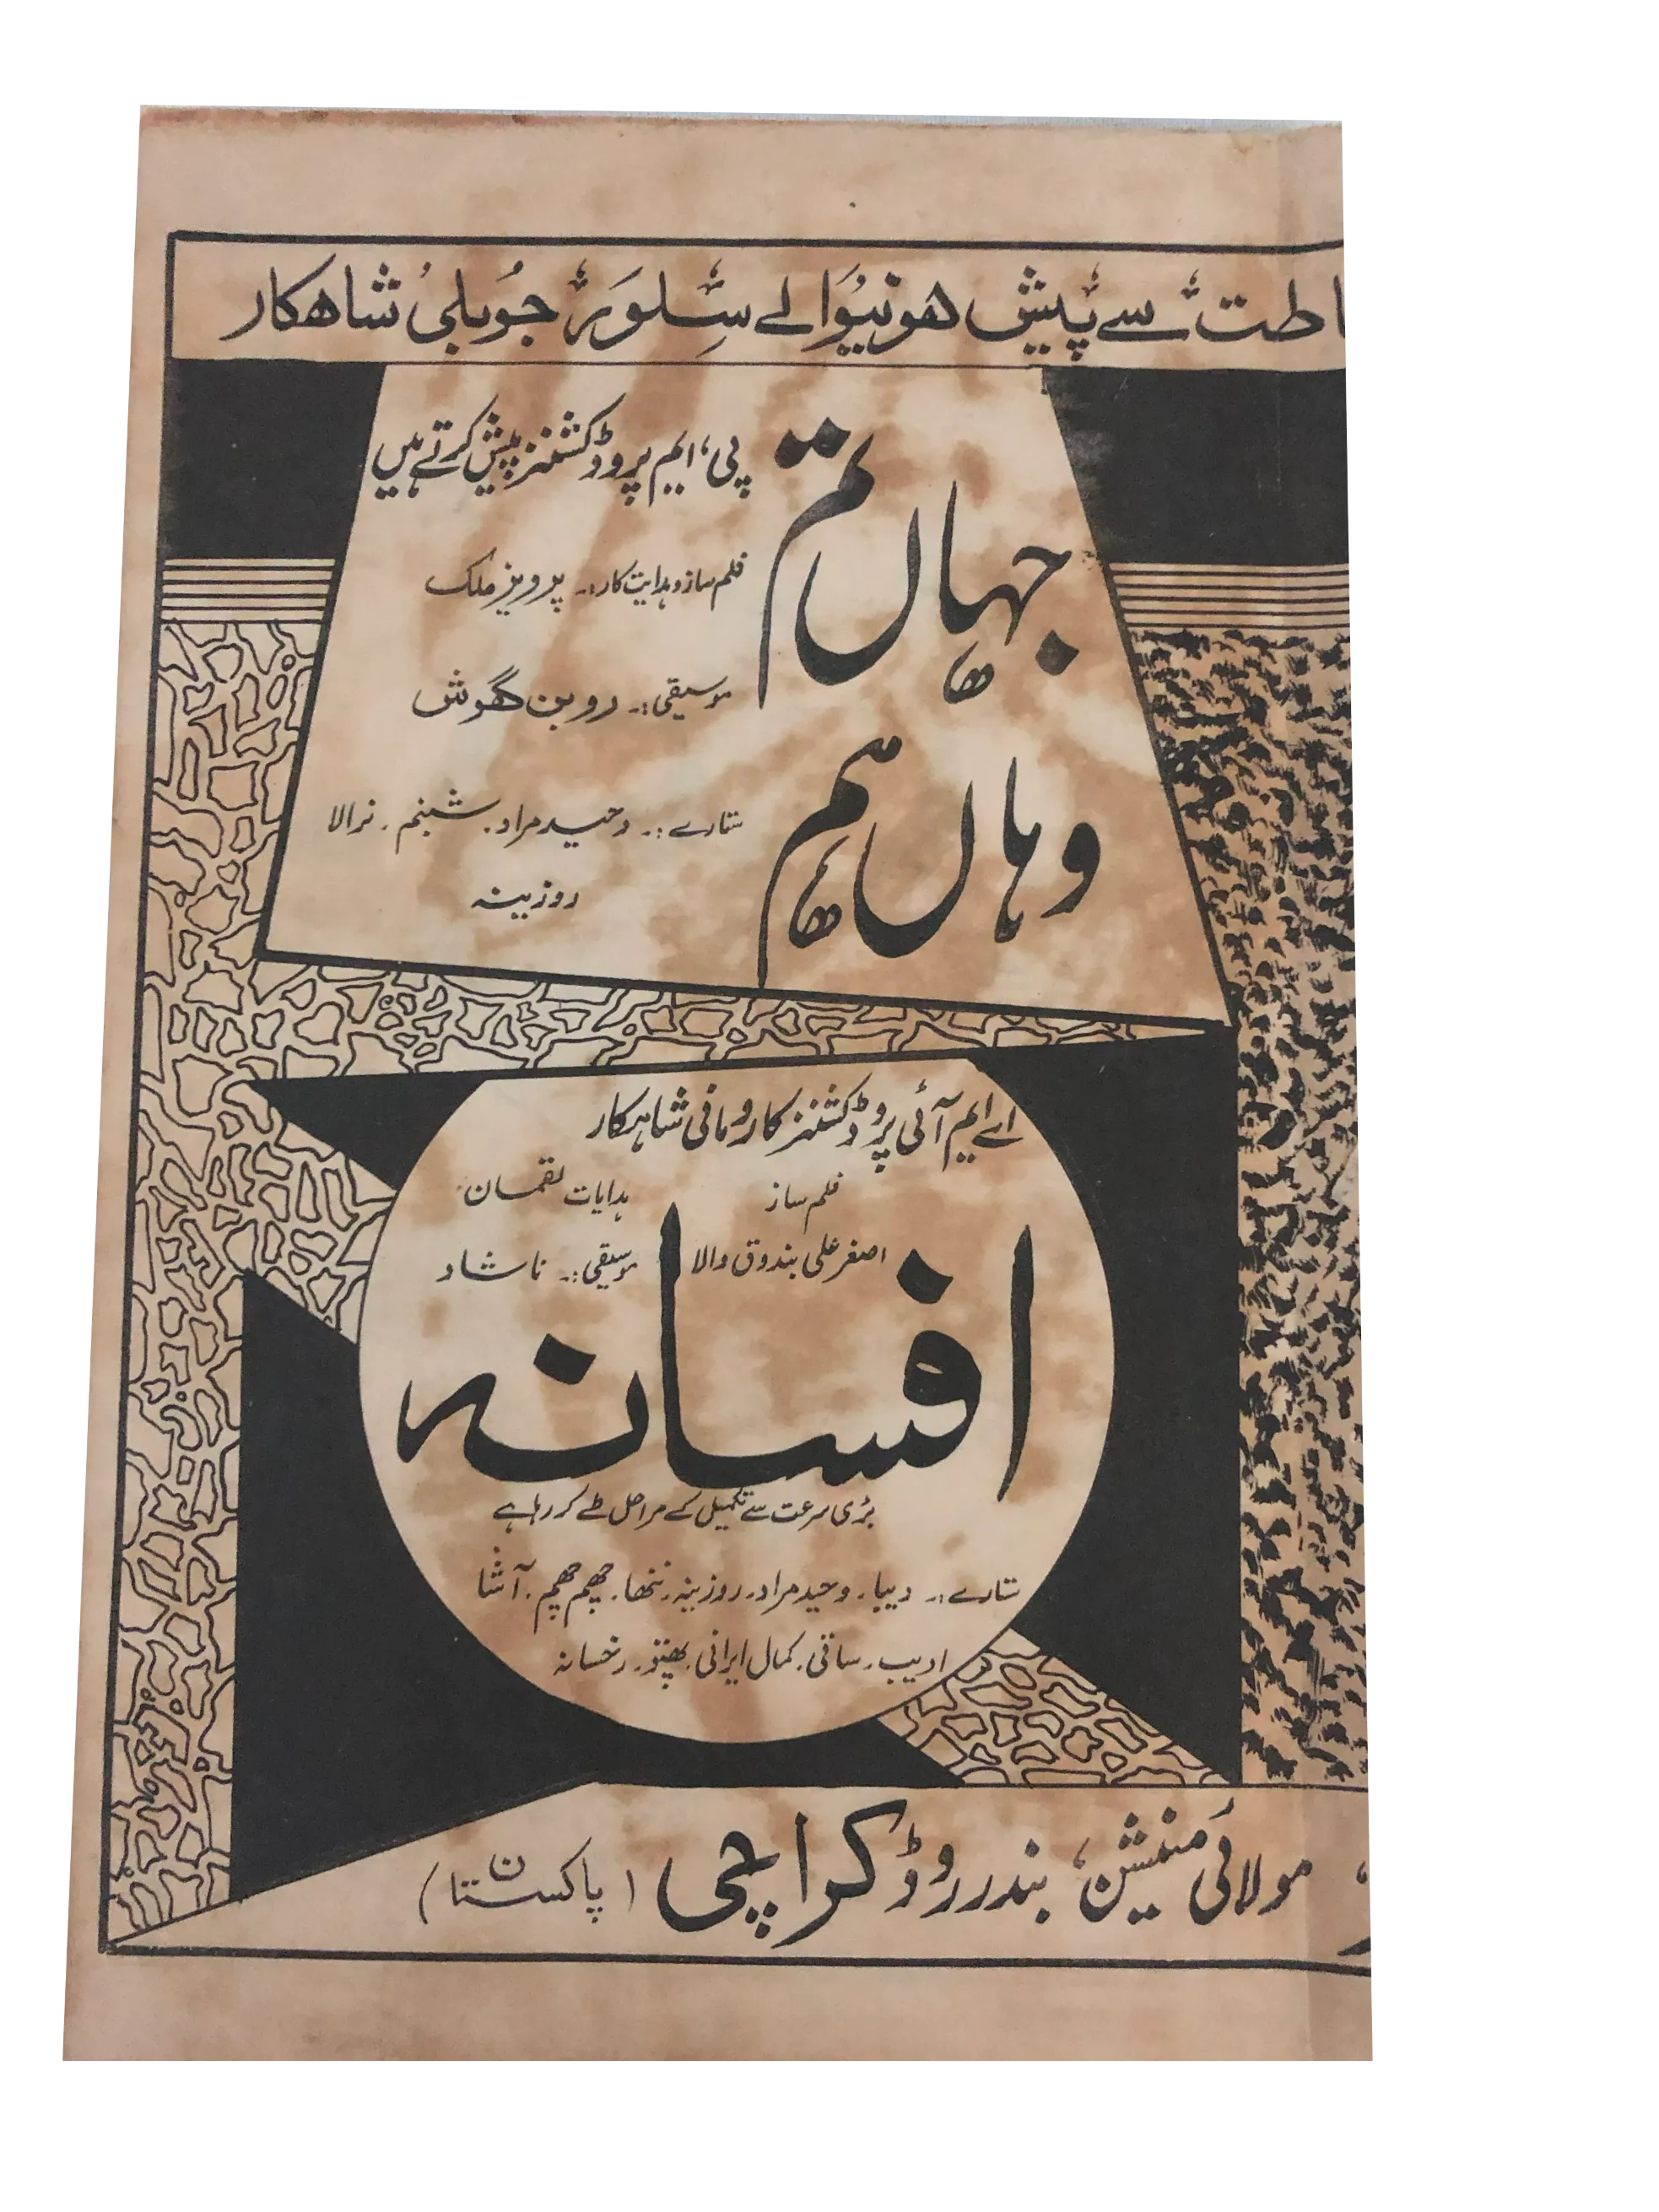 اطت سے پیش ھونیوالے سلور جوبلی شاھکار
پی، ایم پروڈکشنز پیش کرتے ہیں
جہاں تم
وہاں ہم
فلمساز و ہدایت کار:۔ پرویز ملک
موسیقی:۔ روبن گھوش
ستارے:۔ وحید مراد۔ شبنم۔ نرالا
روزینہ
اے ایم آئی پروڈکشنز کا رومانی شاہکار
فلمساز
اصغر علی بندوق والا
ہدایات لقمان
موسیقی:۔ ناشاد
افسانہ
بڑی سرعت سے تکمیل کے مراحل طے کر رہا ہے
ستارے:۔ دیبا۔ وحید مراد۔ روزینہ۔ ننھا۔ چھم چھم۔ آشا
ادیب۔ ساقی۔ کمال ایرانی۔ بھنتو۔ رخسانہ
مولائی منیشن، بندر روڈ کراچی (پاکستان)